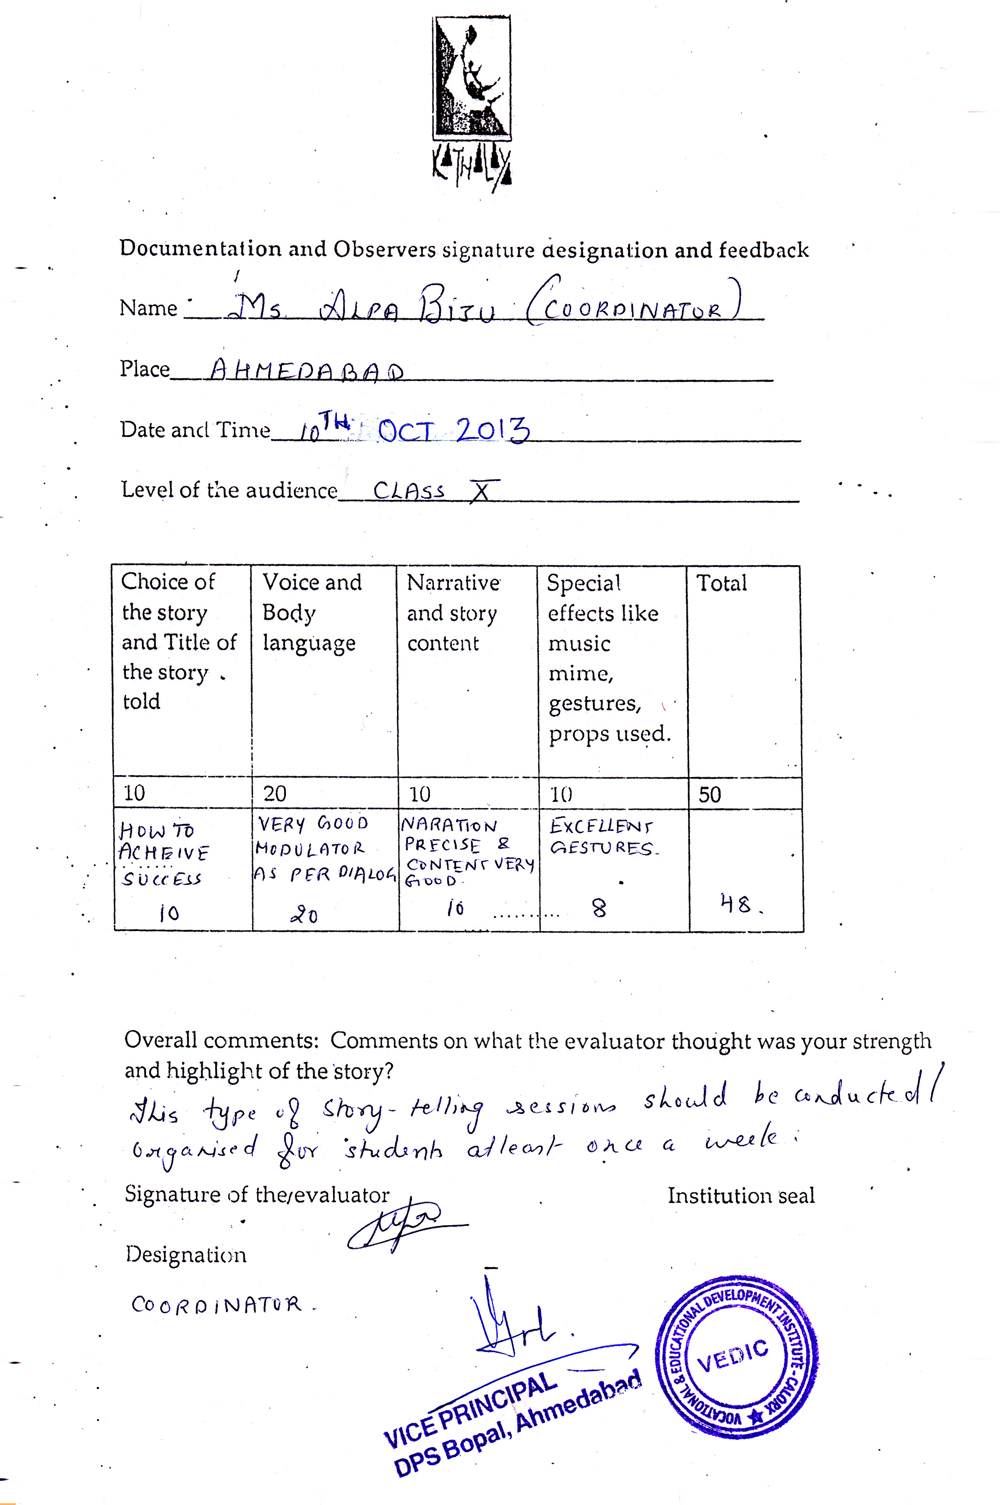 KATHALYA
Documentation and Observers signature designation and feedback
Name Ms. ALPA BIJU (COORDINATOR)
Place AHMEDABAD
Date and Time 10TH OCT 2013
Level of the audience CLASS X
Choice of the story and Title of the story told
Voice and Body language
Narrative and story content
Special effects like music mime, gestures, props used.
Total
10 20 10 10 50
HOW TO ACHEIVE SUCCESS
10
VERY GOOD MODULATOR AS PER DIALOG
20
NARATION PRECISE & CONTENT VERY GOOD.
10
EXCELLENT GESTURES.
8
48.
Overall comments: Comments on what the evaluator thought was your strength
and highlight of the story?
This type of story-telling sessions should be conducted/
organised for students atleast once a week.
Signature of the evaluator
Institution seal
Designation
COORDINATOR.
VICE PRINCIPAL
DPS Bopal, Ahmedabad
VOCATIONAL & EDUCATIONAL DEVELOPMENT INSTITUTE - CALORX
VEDIC